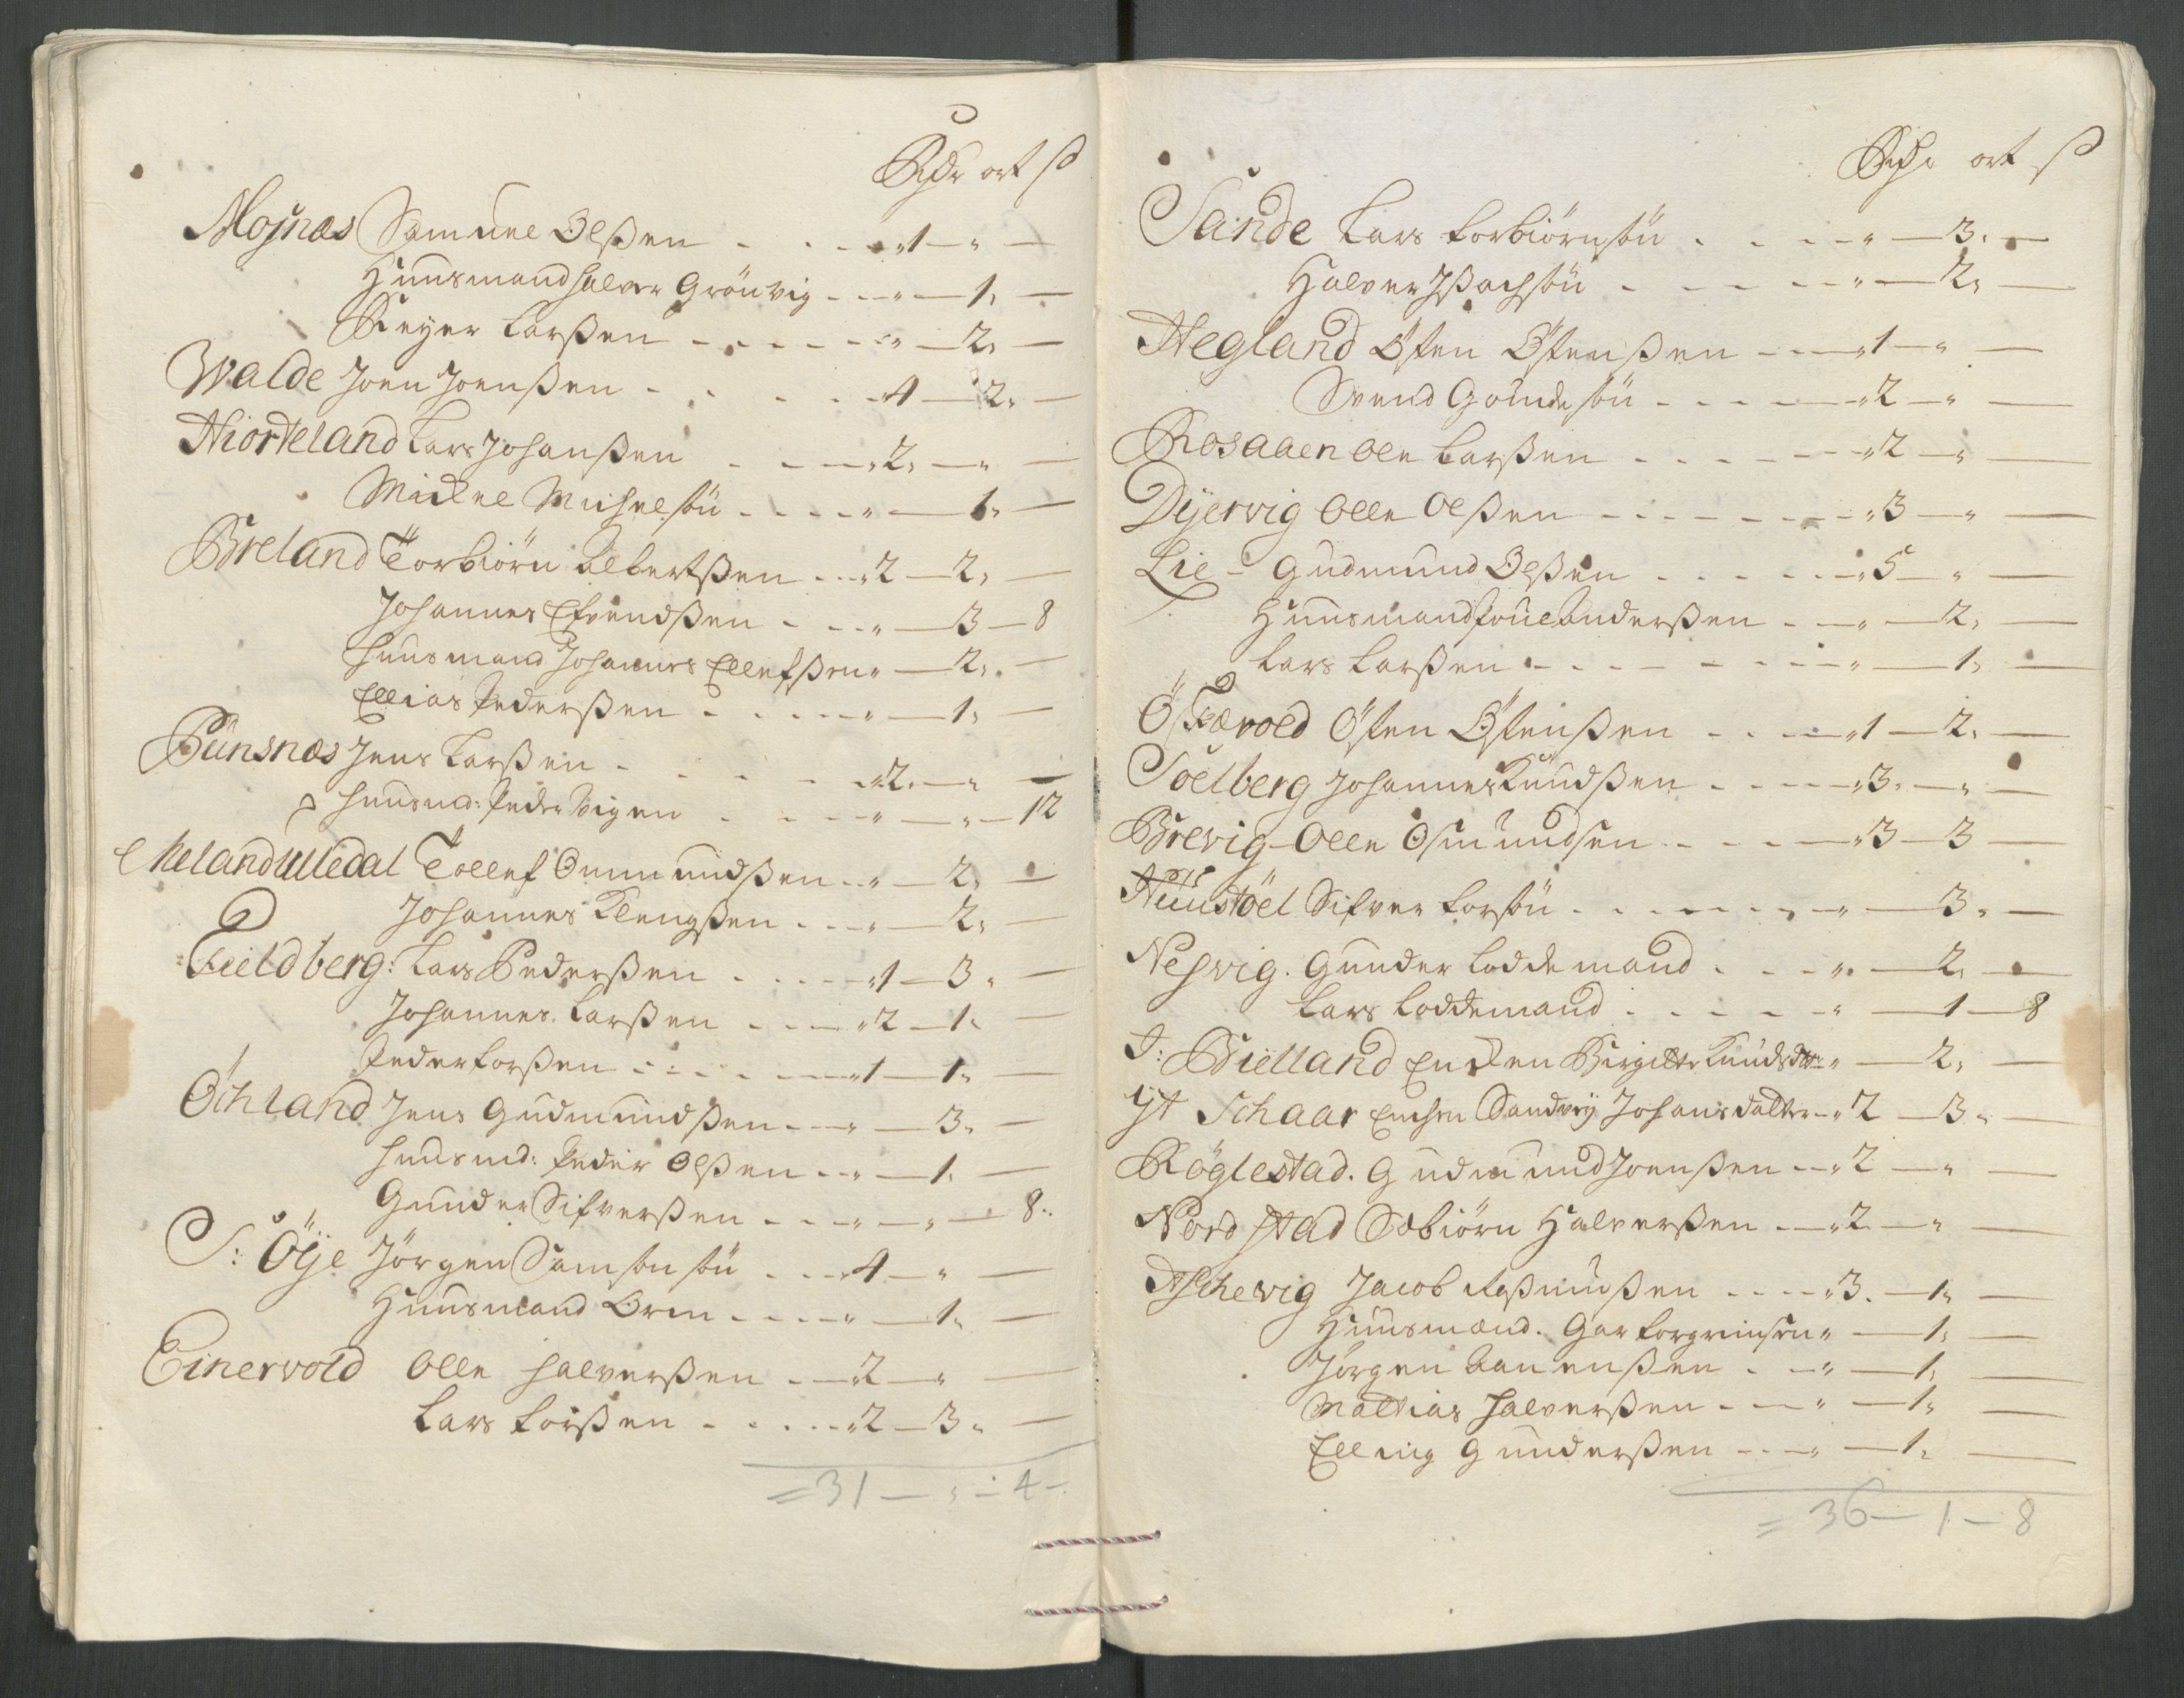 Rdr ort ß
Mosnæs Samuel Olßen - - - - „1 - „ -
Huusmand Halver Grönvig - - - „ - 1„ -
Reyer Larßen - - - - - - „ - 2„ -
Walde Joen Joenßen - - - - - „4 - 2„ -
Hiorteland Lars Johanßen - - - „2„ - „ -
Mickel Michelsøn - - - - „ - 1„ -
Breland Torbiörn Albertßen - - „2 - 2„ -
Johannes Efvendßen - - - „ - 3 - 8
Huusmand Johannes Ellefßen „ - 2„ -
Ellias Pederßen - - - - - „ - 1„ -
Bunsnæs Jens Larßen - - - - - „2„ - „ -
Huusmd: Peder Vigen - - - - „ - „ - 12
Meland Uledal Tollef Omundßen - - „ - 2„ -
Johannes Klengßen - - - „ - 2„ -
Fieldberg: Lars Pederßen - - - - „1 - 3„ -
Johannes Larßen - - - „2 - 1„ -
Peder Larßen - - - - - „1 - 1„ -
Öchland Jens Gudmundßen - - - „ - 3„ -
Huusmd: Peder Olßen - - „ - 1„ -
Gunder Sifverßen - - - „ - „ - 8„
S: Öije Jörgen Samsonsøn - - - „4 - „ -
Huusmand Orm - - - - „ - 1„ -
Einervold Olle Halverßen - - „2 - „ -
Lars Larßen - - - - - „2 - 3„ -
= 31 - „ - 4 -
Rdr ort ß
Sande Lars Torbiörnsøn - - - - „ - 3„ -
Halver Jßachsøn - - - - - „ - 2„ -
Hegland Østen Østenßen - - - „1 - „ -
Svend Gundesøn - - - - - „2 - „ -
Rosaaen Ole Larßen - - - - - - „2 - „ -
Dyervig Olle Olßen - - - - - - - „3 - „ -
Lie - Gudmund Olßen - - - - - „5 - „ -
Huusmand Poul Anderßen - - „ - 2„ -
Lars Larßen - - - - - - - „ - 1„ -
Östervold Østen Østenßen - - - - „1 - 2„ -
Soelberg Johannes Knudßen - - - - „3„ - „ -
Brevig - Olle Osmundsen - - - - „3 - 3 -
Huustöel Sifver Larsøn - - - - - - „ - 3„ -
Nesvig. Gunder Loddemand - - - „ - 2„ -
Lars Loddemand - - - - - „ - 1 - 8
I: Bielland Encken Birgitte Knudsdtr „ - 2„ -
Yt Schaar Enchen Sandvig Johansdatter - „2 - 3„ -
Röglestad. Gudmund Joenßen - - „2 - „ -
Nordstad Sæbiörn Halverßen - - „2 - „ -
Aschevig Jacob Raßmußen - - - - „3 - 1„ -
Huusmænd. Gar Torgrimsen „ - 1„ -
Jörgen Aanenßen - - „ - 1„ -
Mattias Halverßen - - - „ - 1„ -
Elling Gunderßen - - - „ - 1„ -
= 36 - 1 - 8